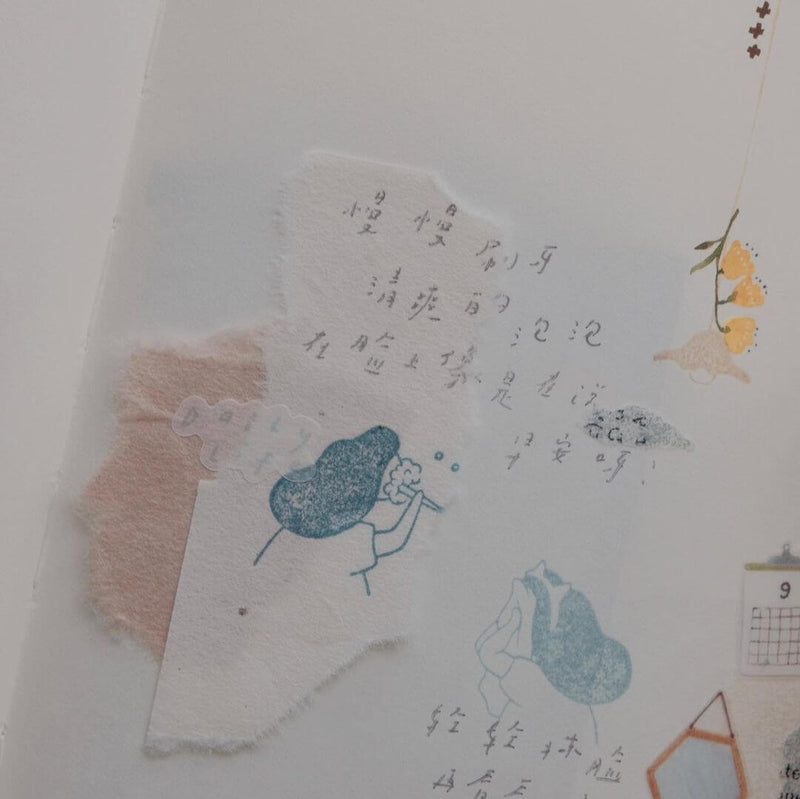 慢慢刷牙
清爽的泡泡
在脸上像是在说
早安呀!
Daily
life
9
轻轻抹脸